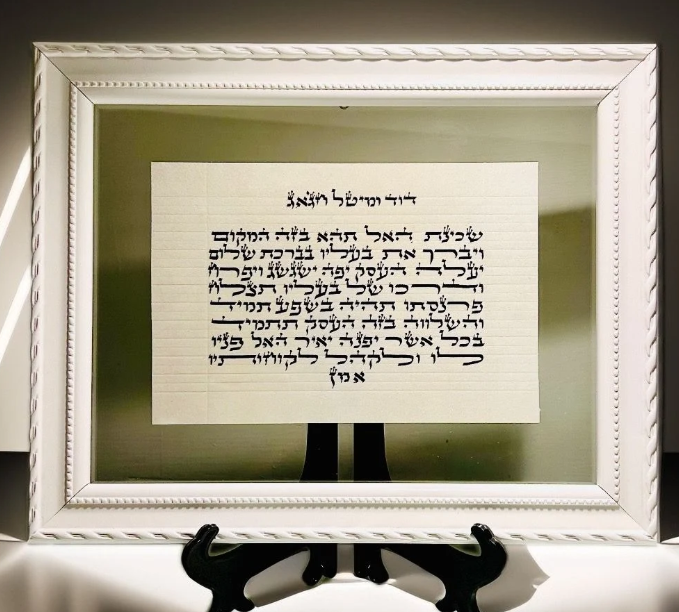 דוד ומיטל חגאג
שכינת האל תהא בזה המקום
ויברך את בעליו בברכת שלום
יעלה העסק יפה ישגשג ויפרח
ודרכו של בעליו תצלח
פרנסתו תהיה בשפע תמיד
והשלווה בזה העסק תתמיד
בכל אשר יפנה יאיר האל פניו
לו ולקהל לקוחותיו
אמן